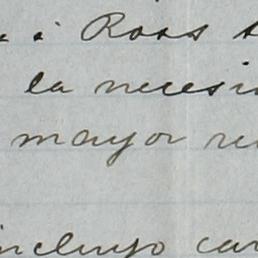 i Ross
la necesi
mayor re
incluyo car